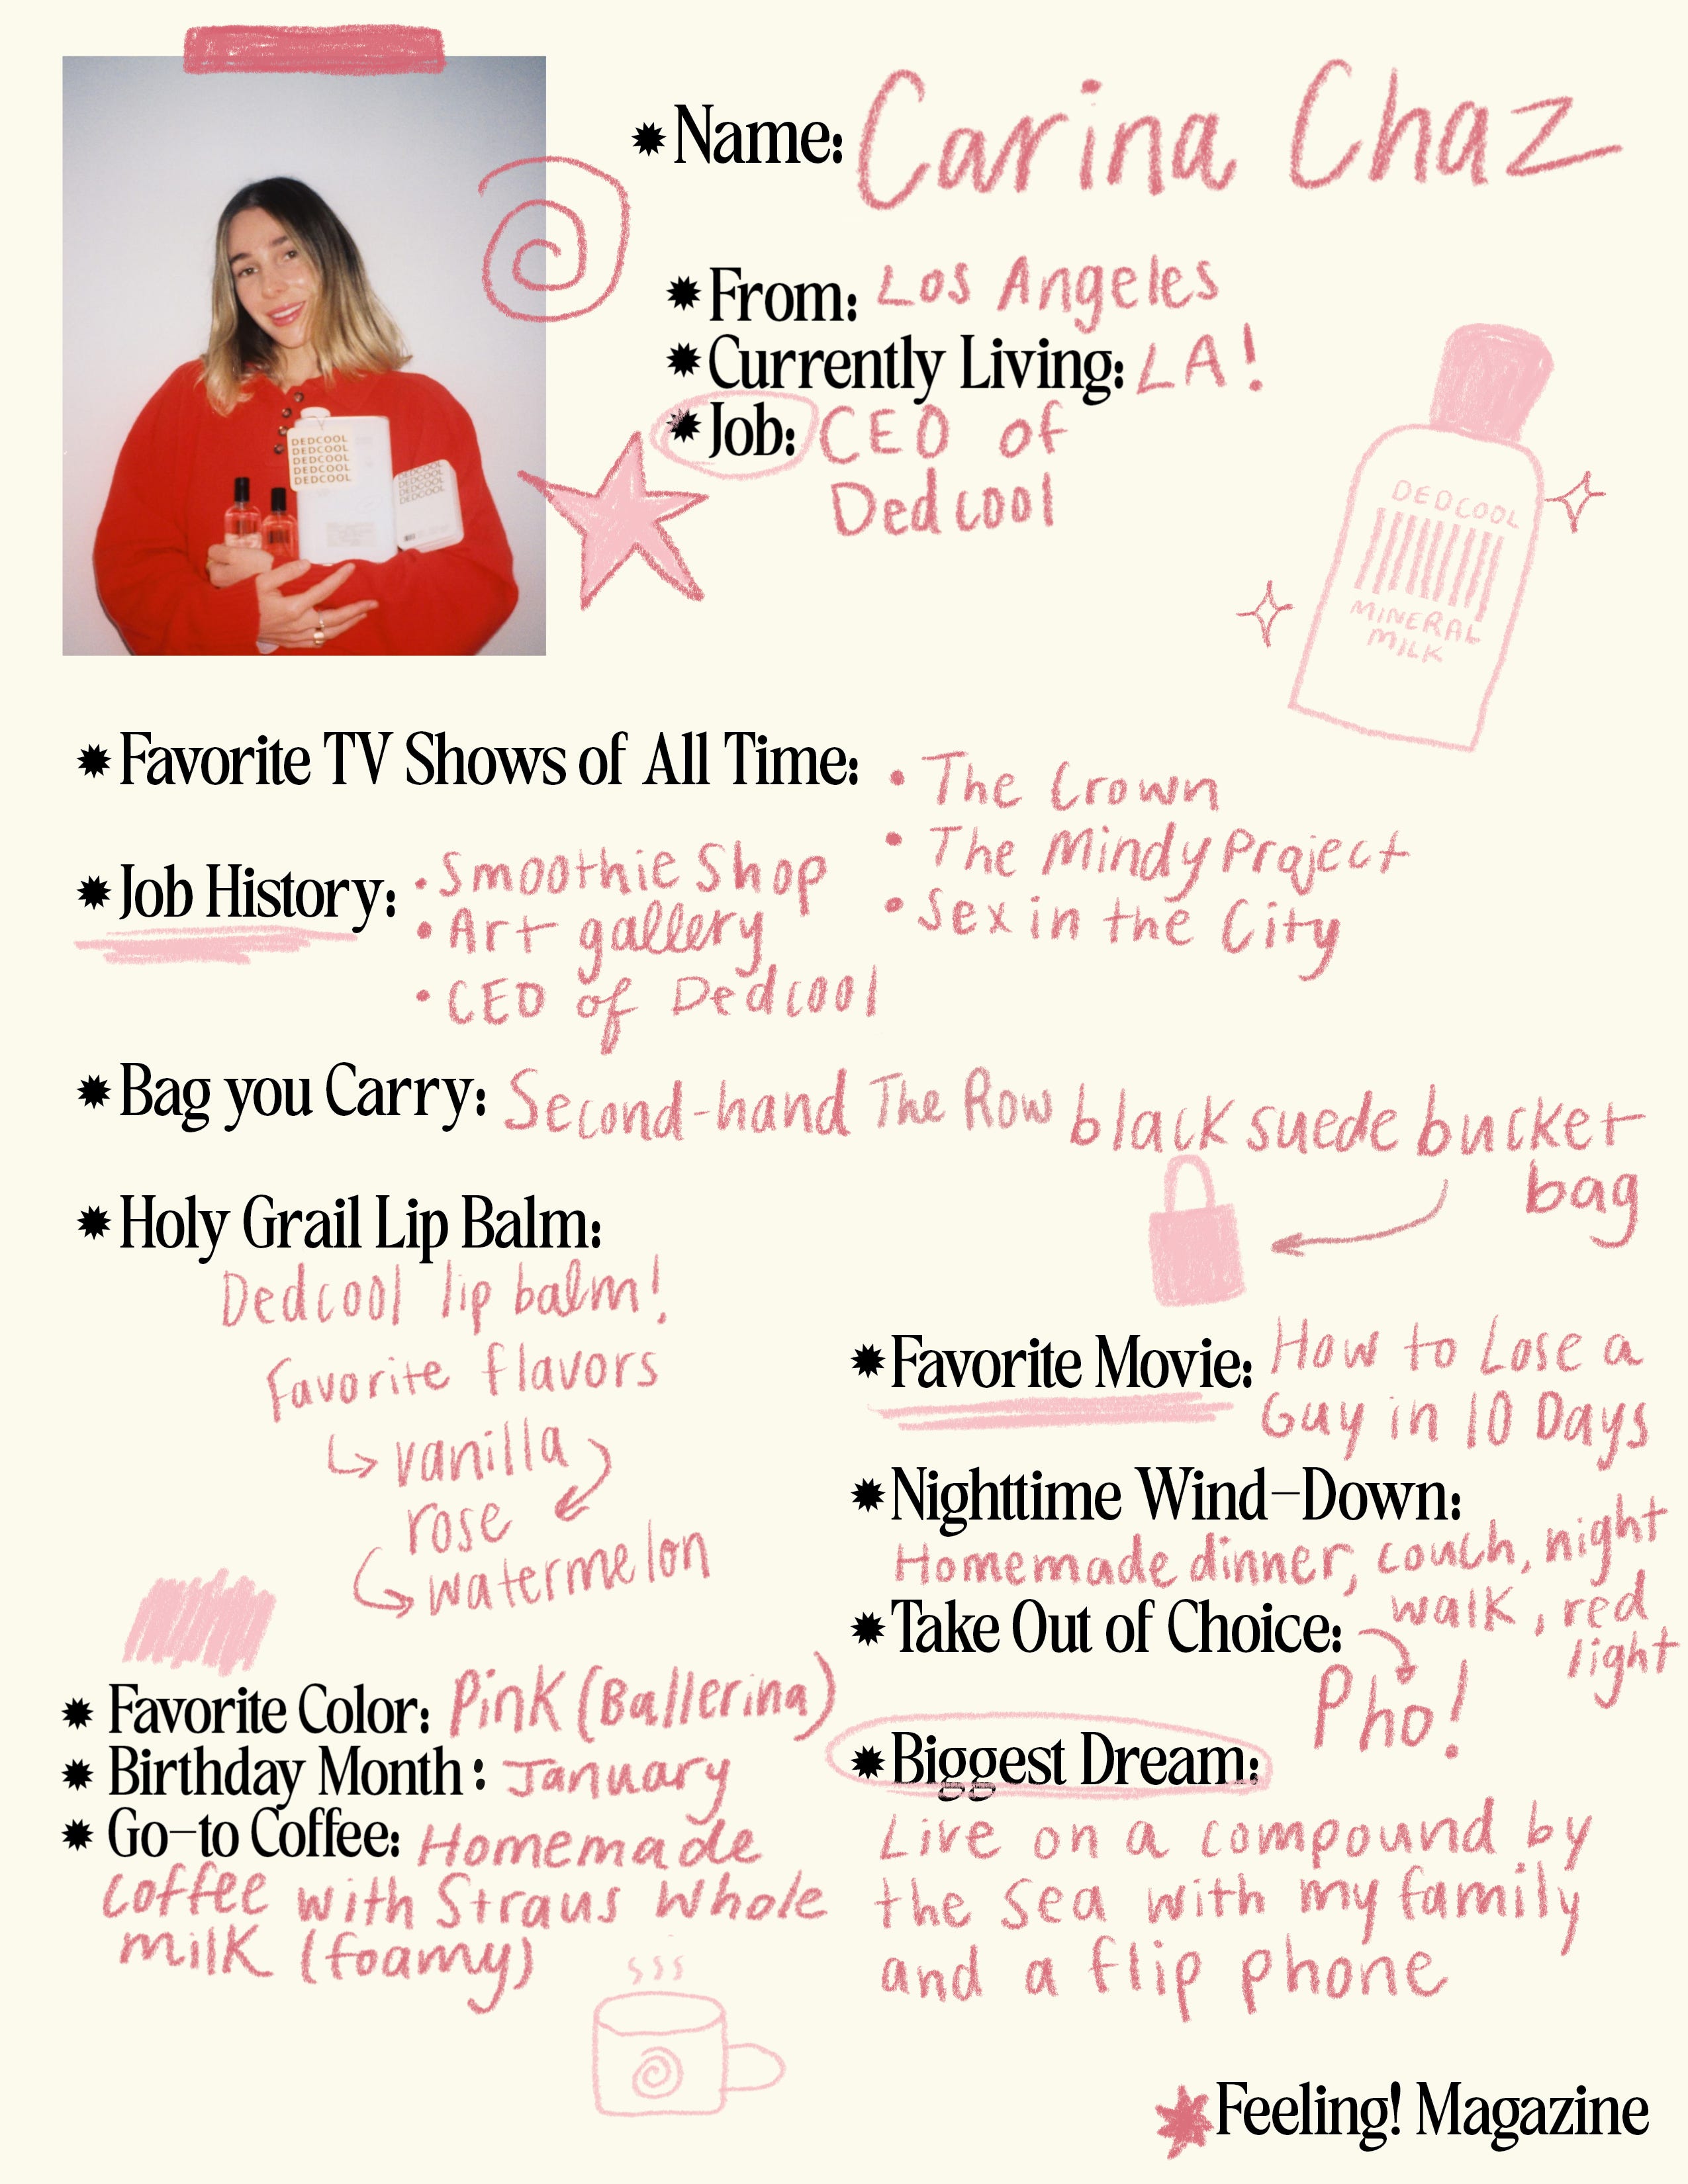 Name: Carina Chaz
From: Los Angeles
Currently Living: LA!
Job: CEO of
Dedcool
DEDCOOL
DEDCOOL
DEDCOOL
DEDCOOL
DEDCOOL
DEDCOOL
DEDCOOL
DEDCOOL
DEDCOOL
DEDCOOL
MINERAL
MILK
Favorite TV Shows of All Time:
• The Crown
• The Mindy Project
• Sex in the City
Job History: • Smoothie Shop
• Art gallery
• CEO of Dedcool
Bag you Carry: Second-hand The Row black suede bucket
bag
Holy Grail Lip Balm:
Dedcool lip balm!
Favorite flavors
vanilla
rose
watermelon
Favorite Movie: How to Lose a
Guy in 10 Days
Nighttime Wind-Down:
Homemade dinner, couch, night
walk, red
light
Take Out of Choice:
Pho!
Favorite Color: Pink (Ballerina)
Birthday Month: January
Go-to Coffee: Homemade
coffee with Straus Whole
milk (foamy)
Biggest Dream:
Live on a compound by
the sea with my family
and a flip phone
Feeling! Magazine